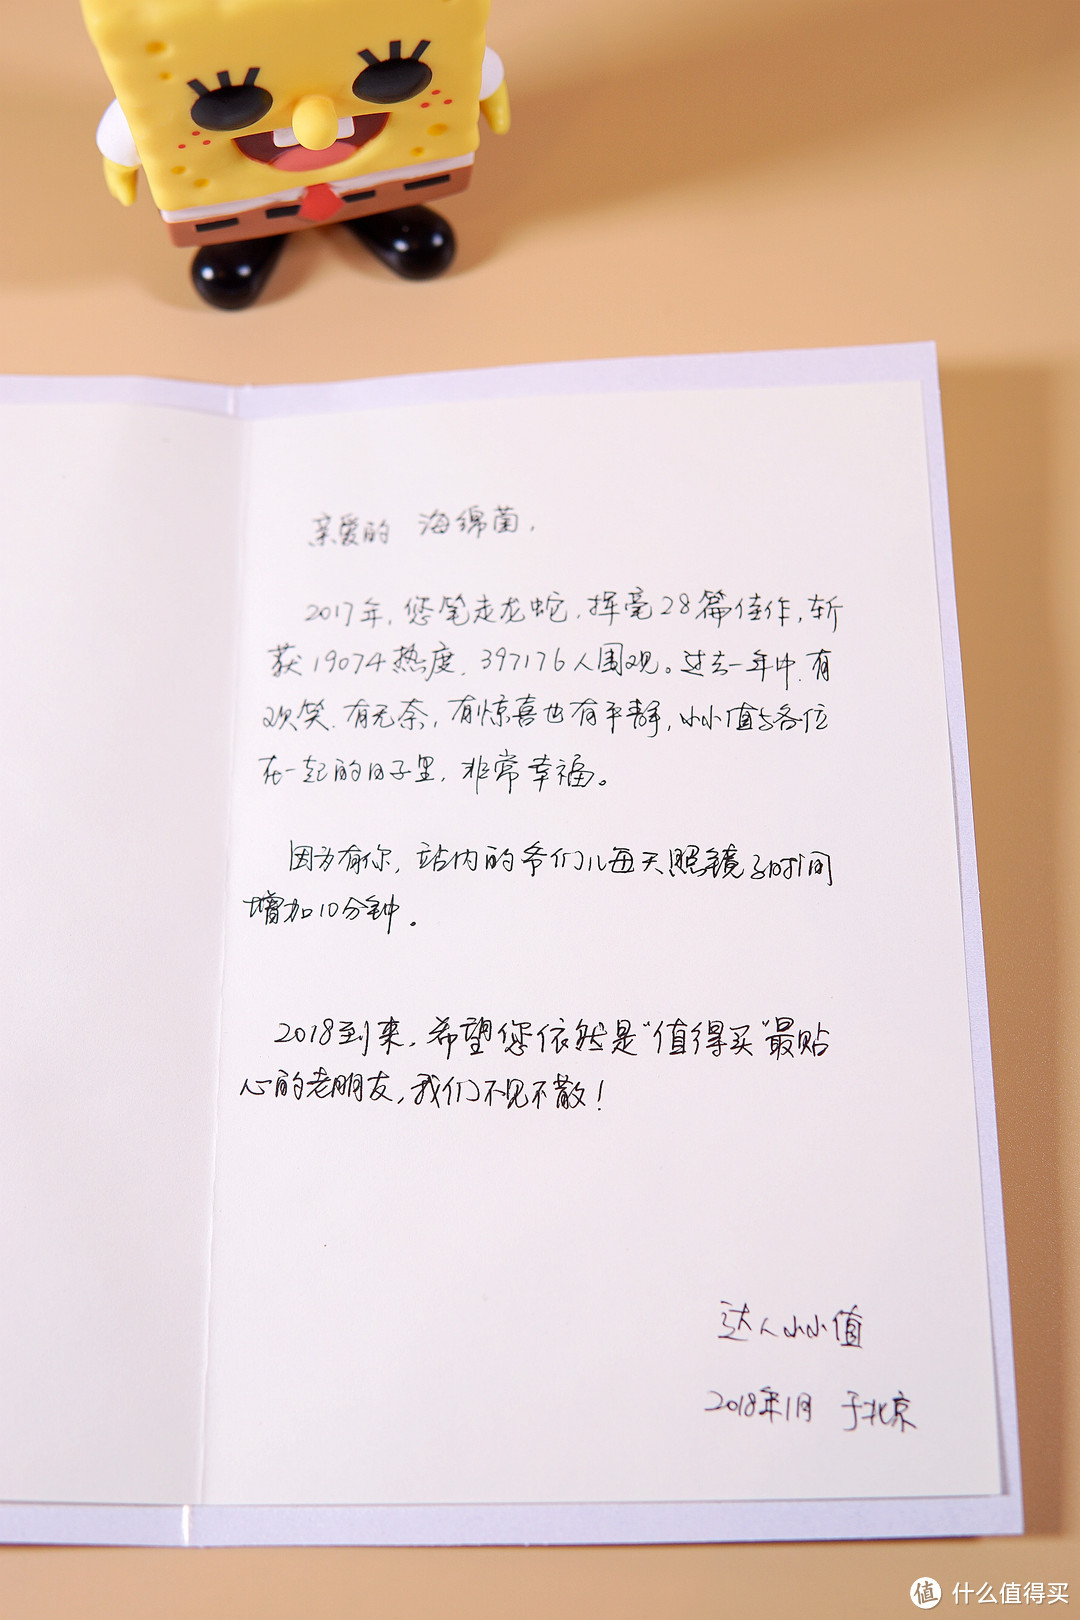 亲爱的 海绵菌,
2017年, 您笔走龙蛇, 挥毫28篇佳作, 斩
获19074热度, 397176人围观。过去一年中, 有
欢笑, 有无奈, 有惊喜也有平静, 小小值与各位
在一起的日子里, 非常幸福。
因为有你, 站内的爷们儿每天照镜子时间
增加10分钟。
2018到来, 希望您依然是“值得买”最贴
心的老朋友, 我们不见不散!
达人小小值
2018年1月 于北京
值 什么值得买